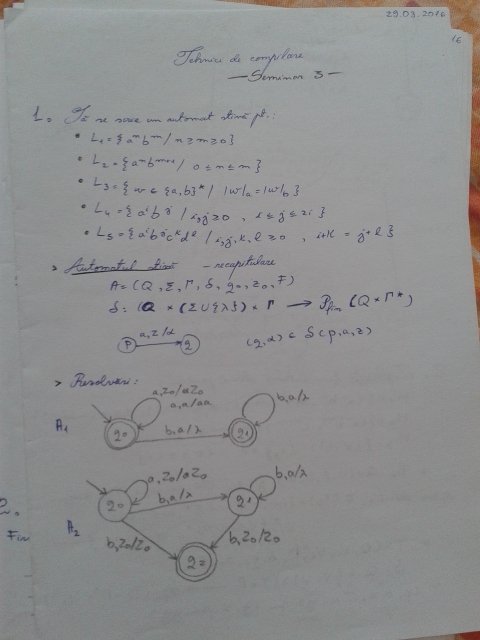 29.03.2016
16
Tehnici de compilare
— Seminar 3 —
1. Să se scrie un automat stivă pt.:
• L₁ = {aⁿbᵐ / n ≥ m ≥ 0}
• L₂ = {aⁿbᵐ⁺¹ / 0 ≤ n ≤ m}
• L₃ = {w ∈ {a,b}* / |w|a = |w|b}
• L₄ = {aⁱbʲ / i,j ≥ 0, i ≤ j ≤ 2i}
• L₅ = {aⁱbʲcᵏdˡ / i,j,k,l ≥ 0, i+k = j+l}
> Automatul stivă - recapitulare
A = (Q, Σ, Γ, δ, q₀, z₀, F)
δ: (Q × (Σ∪{λ}) × Γ → Pfin (Q × Γ*)
p a,z/α q (q,α) ∈ δ(p,a,z)
> Rezolvări:
A₁ q₀ a,z₀/az₀
a,a/aa
b,a/λ q₁ b,a/λ
A₂ q₀ a,z₀/az₀ b,a/λ q₁ b,a/λ
b,z₀/z₀ b,z₀/z₀
q₂
2.